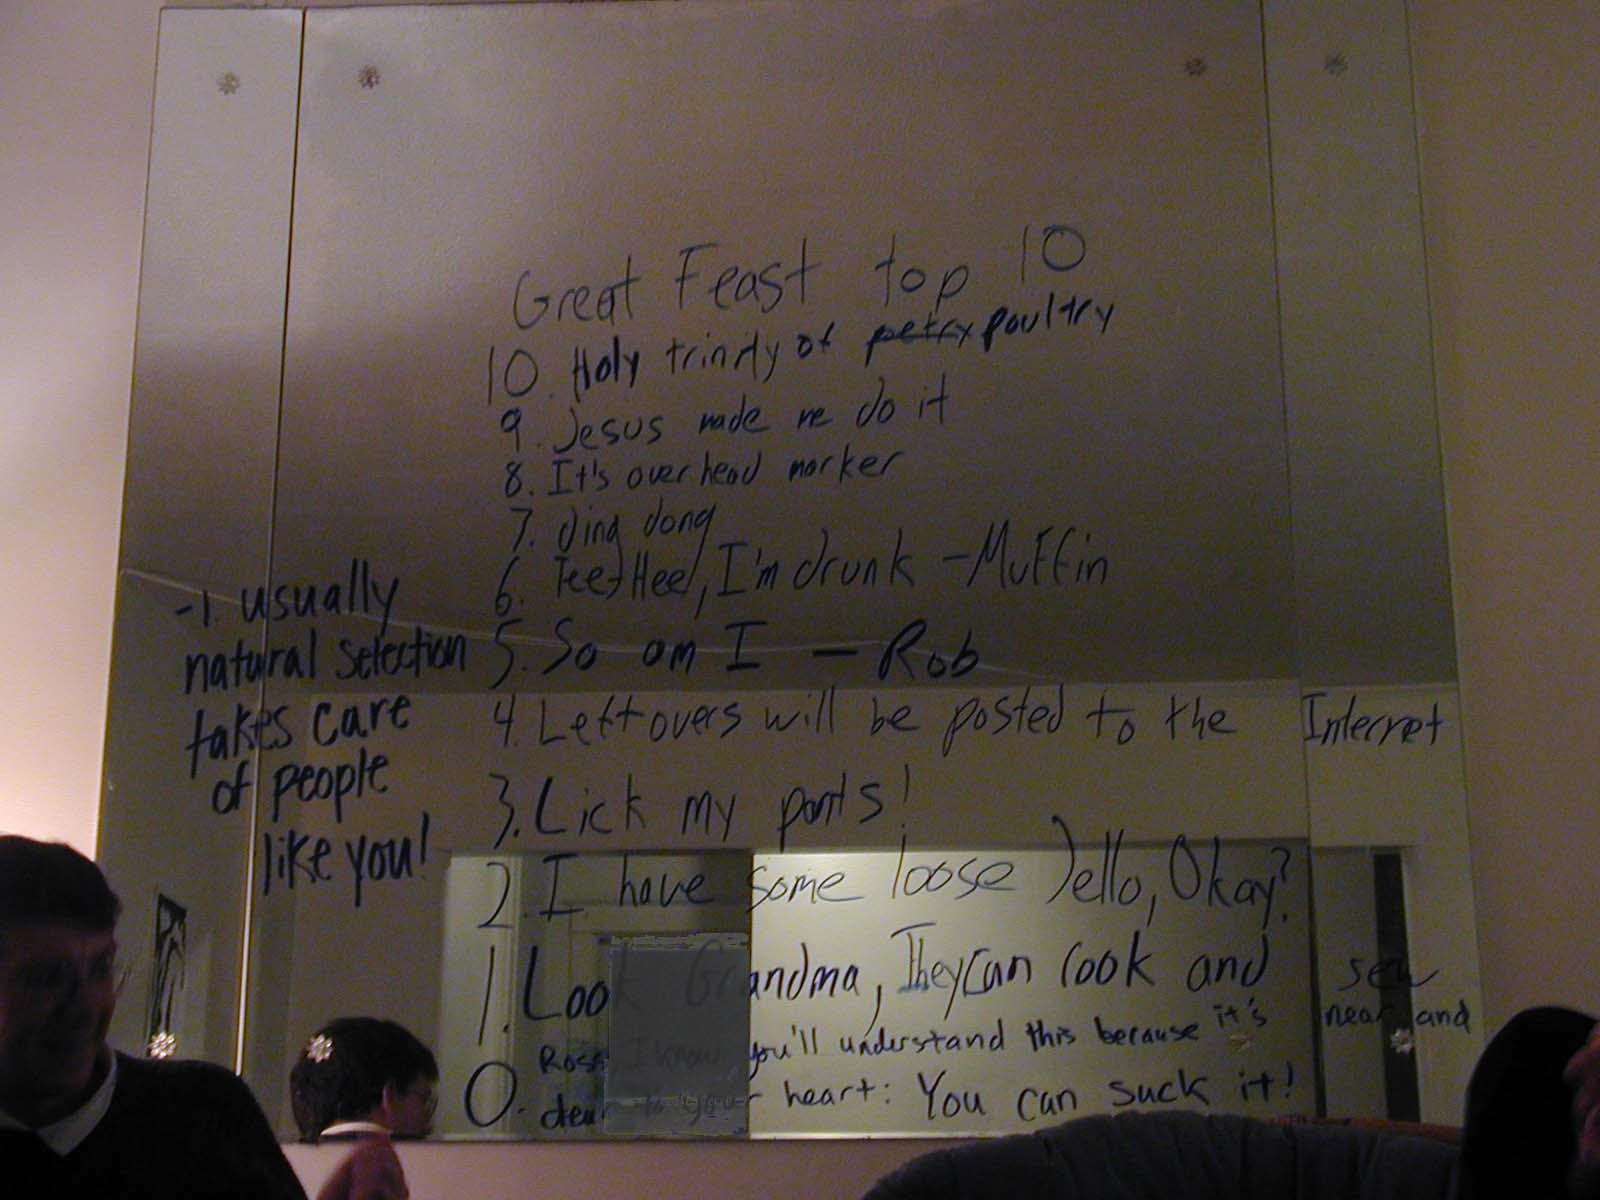 Great Feast top 10
10. Holy trinity of petry poultry
9. Jesus made me do it
8. It's overhead marker
7. ding dong
6. Tee Hee, I'm drunk - Muffin
5. So am I - Rob
4. Leftovers will be posted to the Internet
3. Lick my pants!
2. I have some loose Jello, Okay?
1. Look Grandma, They can cook and sew
0. Ross I know you'll understand this because it's near and
dear to your heart: You can suck it!
-1. usually
natural selection
takes care
of people
like you!